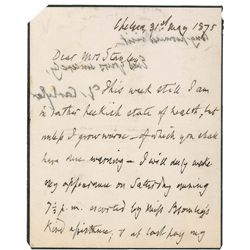 Chelsea, 31st May 1875
Dear Mrs Stanley,
This week still I am
in rather peckish state of health, but
unless I grow worse – of which you shall
have due warning – I will duly make
my appearance on Saturday evening
7½ p.m. escorted by Miss Bromley's
kind assistance, & at last pay my